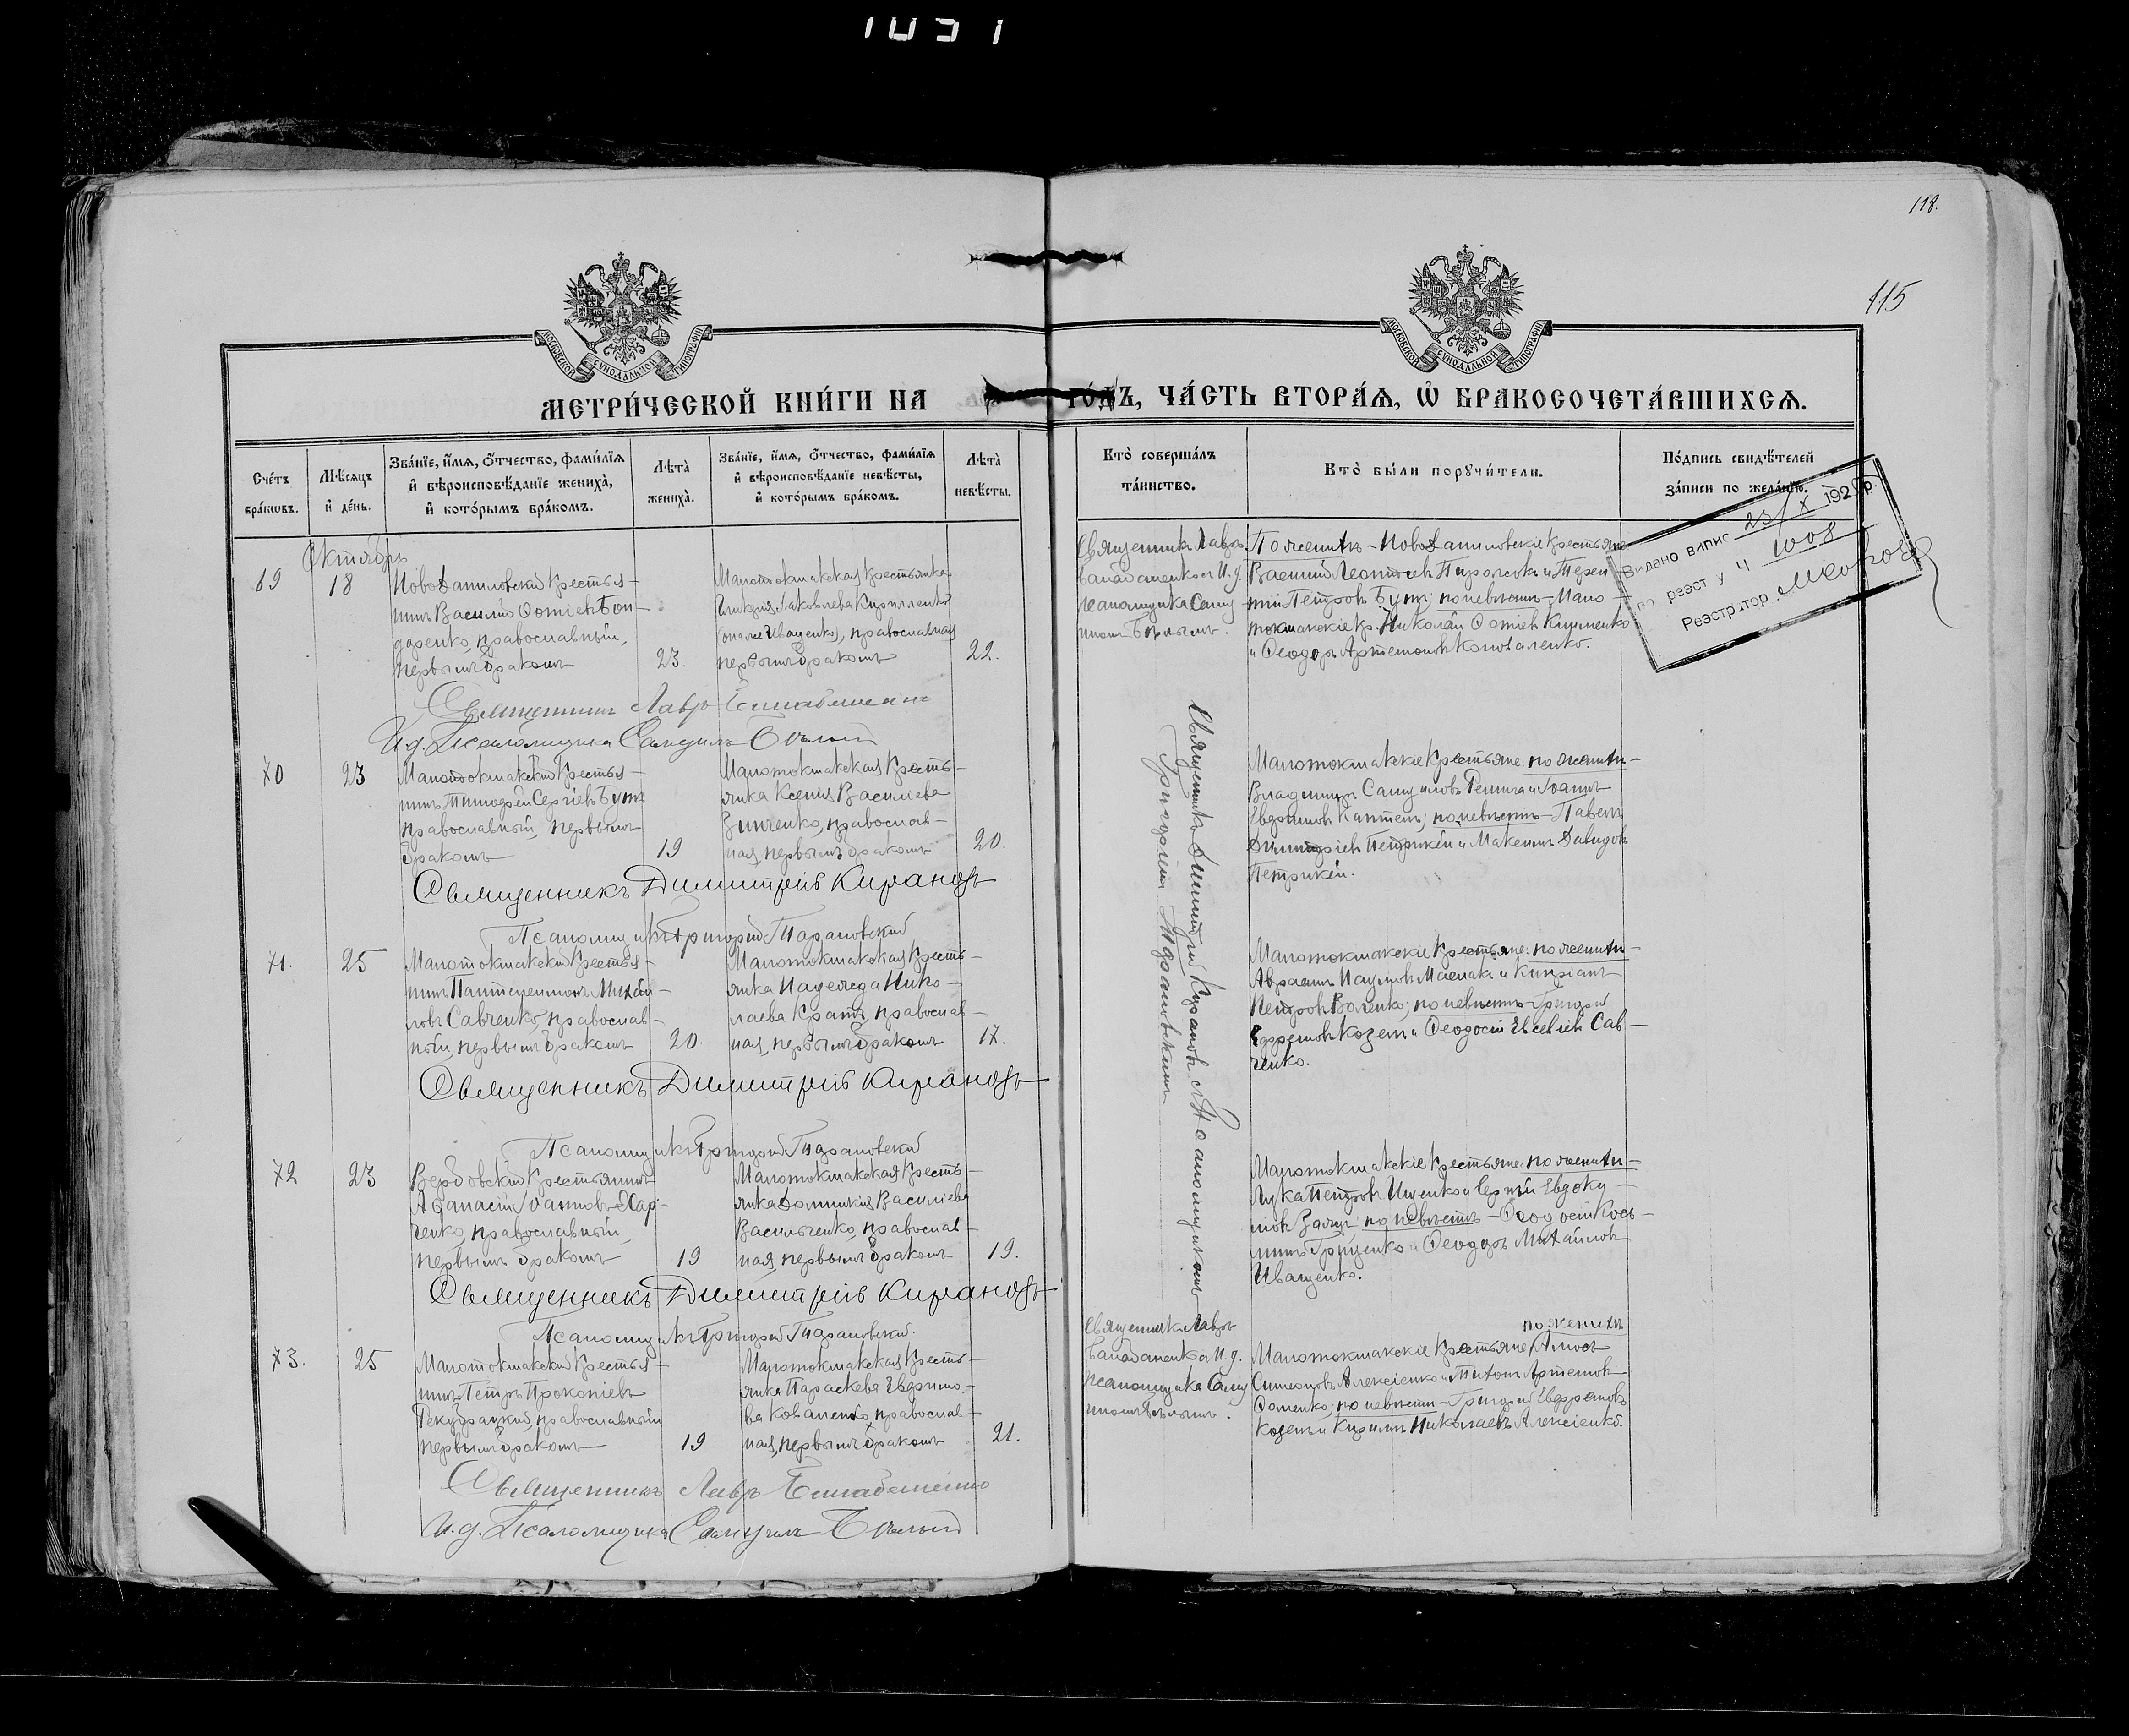 1031
118.
115
МОСКОВСКОЙ СѴНОДАЛЬНОЙ ТИПОГРАФІИ
МОСКОВСКОЙ СѴНОДАЛЬНОЙ ТИПОГРАФІИ
МЕТРИ́ЧЕСКОЙ КНИ́ГИ НА ГО́ДЪ, ЧА́СТЬ ВТОРА́Я, Ѡ҆ БРАКОСОЧЕТА́ВШИХСЯ.
Сче́тъ бра́кѡвъ.
Мѣ́сяцъ и҆ де́нь.
Зва́нїе, и҆́мя, ѻ҆́тчество, фами́лїя и҆ вѣроисповѣ́данїе жениха̀, и҆ кото́рымъ бра́комъ.
Лѣта̀ жениха̀.
Зва́нїе, и҆́мя, ѻ҆́тчество, фами́лїя и҆ вѣроисповѣ́данїе невѣ́сты, и҆ кото́рымъ бра́комъ.
Лѣта̀ невѣ́сты.
Кто̀ соверша́лъ та́инство.
Кто̀ бы́ли порꙋчи́тели.
По́дпись свидѣ́телей за́писи по жела́нїю.
Октябрь
69
18
Новоданиловскій крестья-
нинъ Василій Фотіевъ Бон-
даренко, православный,
первымъ бракомъ
23.
Малотокмакская крестьянка
Гликерія Яковлева Кирилленко
(она же Иващенко), православная
первымъ бракомъ
22.
Священникъ Лавръ
Балабаненко и И. д.
псаломщика Саму
иломъ Бѣлымъ.
По женихѣ - Новоданиловскіе крестьяне
Василій Леонтіевъ Пирожокъ и Терен
тій Петровъ Бутъ; по невѣстѣ - Мало
токмакскіе кр. Николай Фотіев Клименко
и Ѳеодоръ Артемоновъ Коноваленко.
Видано випис 25/X 192 р.
по реєст у Ч 1008
Реэстратор
Священникъ Лавръ Балабаненко
И. д. Псаломщика Самуилъ Бѣлый
70
23
Малотокмакскій крестья-
нинъ Тимофей Сергіевъ Бутъ
православный, первымъ
бракомъ
19
Малотокмакская кресть-
янка Ксенія Васильева
Зинченко, православ-
ная, первымъ бракомъ
20.
Священникъ Димитрій Кирановъ съ Псаломщикомъ
Григоріемъ Тарановскимъ
Малотокмакскіе крестьяне: по женихѣ -
Владимиръ Самуиловъ Репига и Іоаннъ
Евфимовъ Каптелъ; по невѣстѣ - Павелъ
Димитріевъ Петрикѣй и Максимъ Давидовъ
Петрикѣй.
Священникъ Димитрій Кирановъ
Псаломщикъ Григорій Тарановскій
71.
25
Малотокмакскій крестья-
нинъ Пантелеимонъ Михай-
ловъ Савченко, православ-
ный, первымъ бракомъ
20.
Малотокмакская кресть-
янка Надежда Нико-
лаева Кратъ, православ-
ная, первымъ бракомъ
17.
Малотокмакскіе крестьяне: по женихѣ -
Авраамъ Наумовъ Маслакъ и Кипріанъ
Петровъ Воленко; по невѣстѣ - Григорій
Ефремовъ Козелъ и Ѳеодосій Евсевіевъ Сав-
ченко.
Священникъ Димитрій Кирановъ
Псаломщикъ Григорій Тарановскій
72
23
Вербовскій крестьянинъ
Аѳанасій Іоанновъ Хар-
ченко, православный,
первымъ бракомъ
19
Малотокмакская кресть-
янка Домникія Васильева
Васильченко, православ-
ная, первымъ бракомъ
19.
Малотокмакскіе крестьяне: по женихѣ -
Лука Петровъ Ищенко и Сергѣй Евдоки-
мовъ Заяцъ; по невѣстѣ - Ѳеодосій Козь-
минъ Гриценко и Ѳеодоръ Михайловъ
Иващенко.
Священникъ Димитрій Кирановъ
Псаломщикъ Григорій Тарановскій.
73.
25
Малотокмакскій крестья-
нинъ Петръ Прокопіевъ
Рекубрацкій, православный
первымъ бракомъ
19
Малотокмакская кресть-
янка Параскева Евфимо-
ва Коваленко, православ-
ная, первымъ бракомъ
21.
Священникъ Лавръ
Балабаненко и И. д.
псаломщика Саму
иломъ Бѣлымъ.
по женихѣ
Малотокмакскіе крестьяне Амосъ
Симеоновъ Алексіенко и Тихонъ Артемовъ
Фоменко; по невѣстѣ - Григорій Евфремовъ
Козелъ и Кириллъ Николаевъ Алексіенко.
Священникъ Лавръ Балабаненко
И. д. Псаломщика Самуилъ Бѣлый